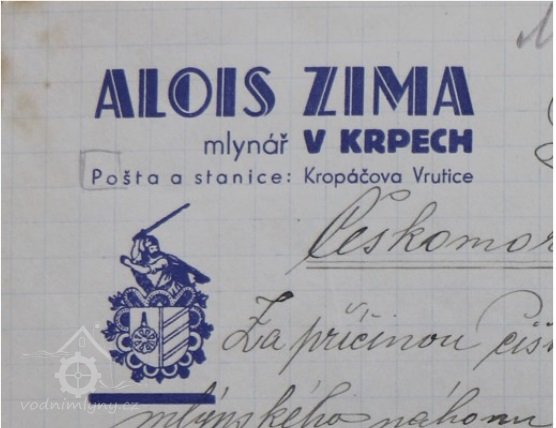 ALOIS ZIMA
mlynář V KRPECH
Pošta a stanice: Kropáčova Vrutice
Českomor
Za příčinou čiš
mlýnského náhonu
vodnimlyny.cz